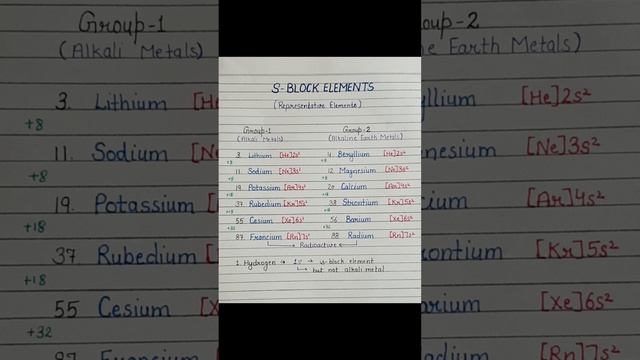 Group-1
(Alkali Metals)
3. Lithium [He
+8
11. Sodium [Ne
+8
19. Potassium
+18
37 Rubedium
+18
55 Cesium [X
+32
S-BLOCK ELEMENTS
(Representative Elements)
Group-1 Group-2
(Alkali Metals) (Alkaline Earth Metals)
3. Lithium [He]2s¹ 4. Beryllium [He]2s²
+8 +8
11. Sodium [Ne]3s¹ 12. Magnesium [Ne]3s²
+8 +8
19. Potassium [Ar]4s¹ 20 Calcium [Ar]4s²
+18 +18
37 Rubedium [Kr]5s¹ 38 Strontium [Kr]5s²
+18 +18
55 Cesium [Xe]6s¹ 56 Barium [Xe]6s²
+32 +32
87 Francium [Rn]7s¹ 88 Radium [Rn]7s²
Radioactive
1. Hydrogen → 1s¹ → s-block element
but not alkali metal
oup-2
ne Earth Metals)
yllium [He]2s²
nesium [Ne]3s²
cium [Ar]4s²
ontium [Kr]5s²
arium [Xe]6s²
adium [Rn]7s²